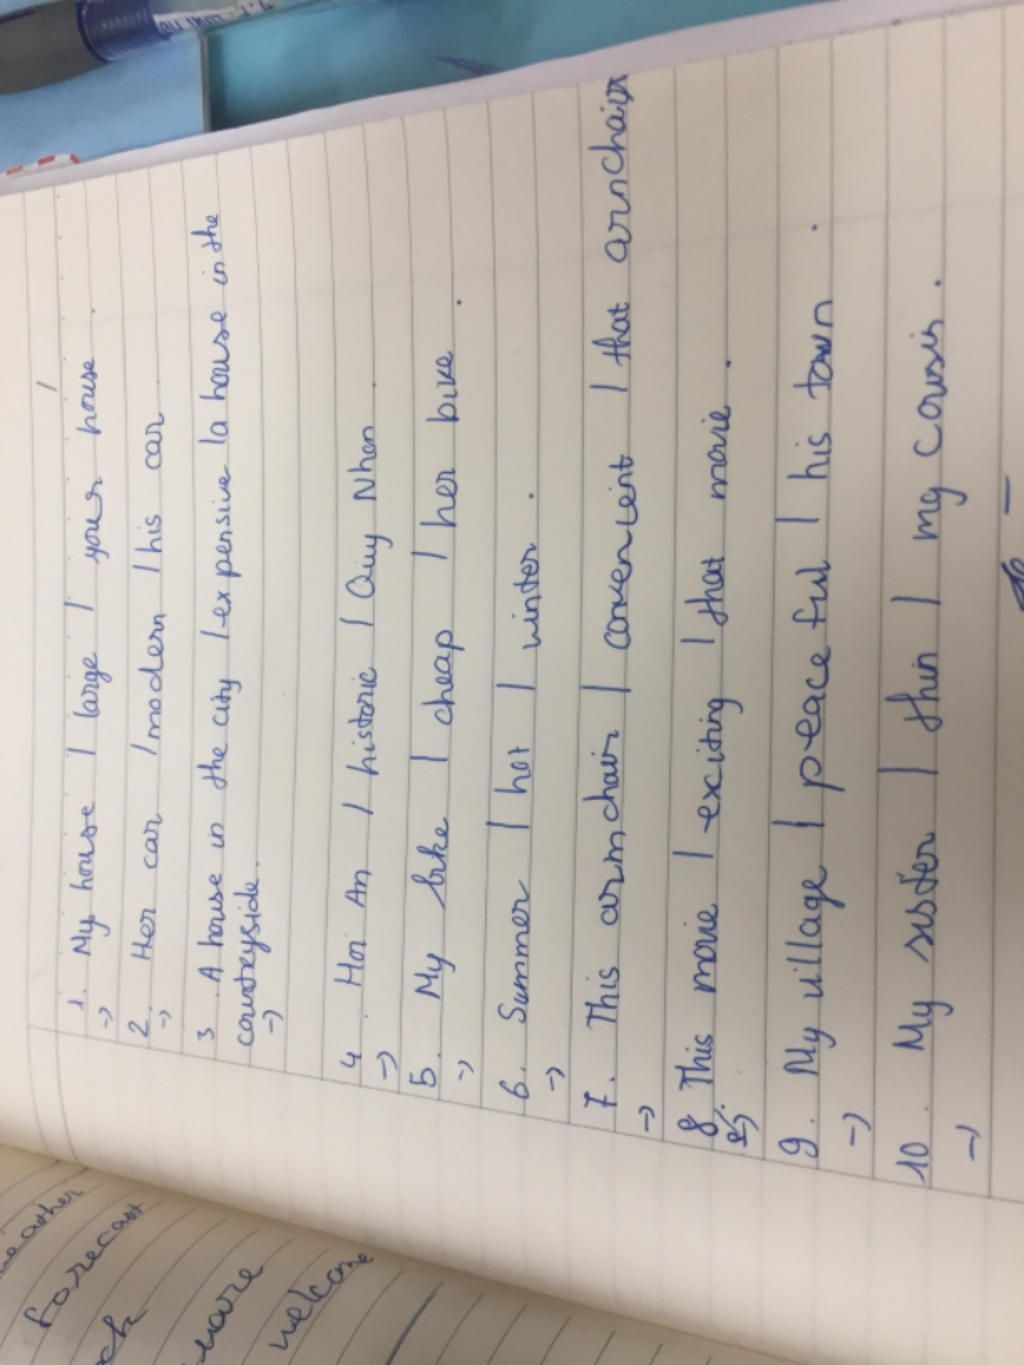 1. My house / large / your house.
->
2. Her car / modern / his car.
->
3. A house in the city / expensive / a house in the
countryside.
->
4. Hoi An / historic / Quy Nhon.
->
5. My bike / cheap / her bike.
->
6. Summer / hot / winter.
->
7. This armchair / convenient / that arnchair
->
8. This movie / exciting / that movie.
->
9. My village / peaceful / his town.
->
10. My sister / thin / my cousin.
->
weather
forecast
more
welcome